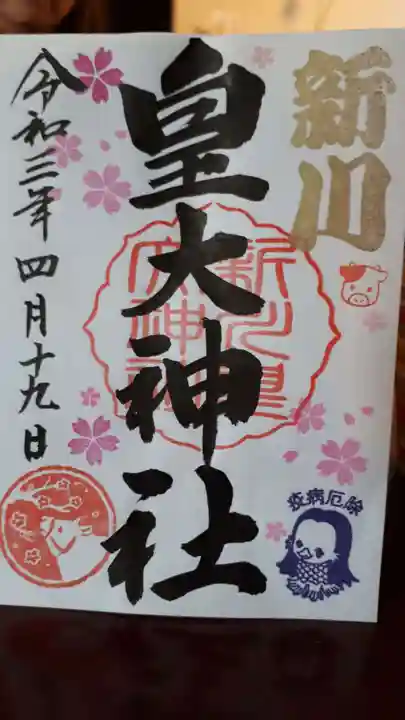 新川
皇大神社
新川皇
大神社
疫病厄除
令和三年四月十九日